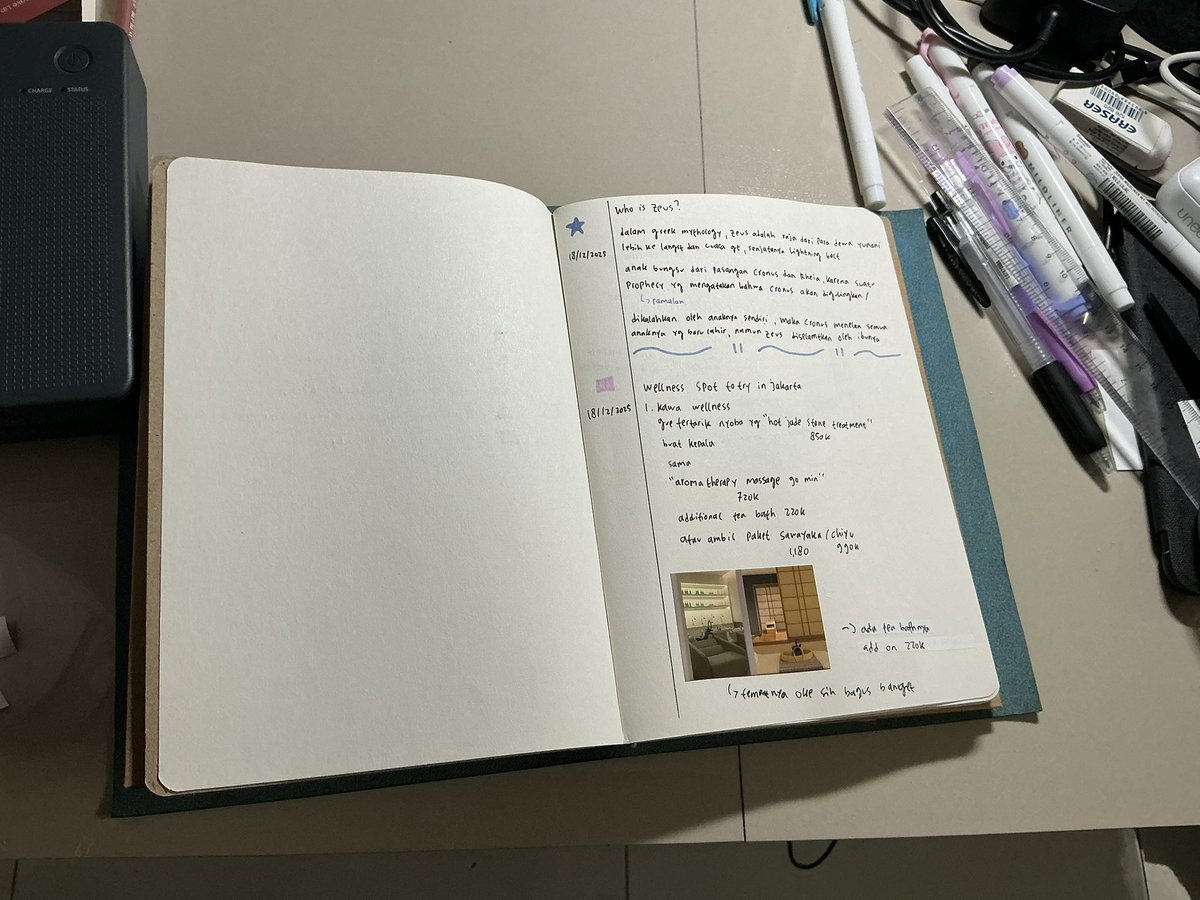 CHARGE STATUS
Who is Zeus?
18/12/2025
dalam greek mythology, Zeus adalah raja dari para dewa yunani
lebih ke langit dan cuaca gt, senjatanya lightning bolt
anak bungsu dari pasangan Cronus dan Rheia, karena suatu
prophecy yg mengatakan bahwa Cronus akan digulingkan /
↳ ramalan
dikalahkan oleh anaknya sendiri, maka Cronus menelan semua
anaknya yg baru lahir, namun Zeus diselamtkan oleh ibunya
18/12/2025
Wellness spot to try in jakarta
1. kawa wellness
gue tertarik nyoba yg "hot jade stone treatment"
850k
buat kepala
sama
"aromatherapy massage 90 min"
720k
additional tea bath 220k
atau ambil paket Sawayaka / chiyu
1,180 990k
→ ada tea bathnya
add on 220k
↳ tempatnya oke sih bagus banget
ERASER
MILDLINER